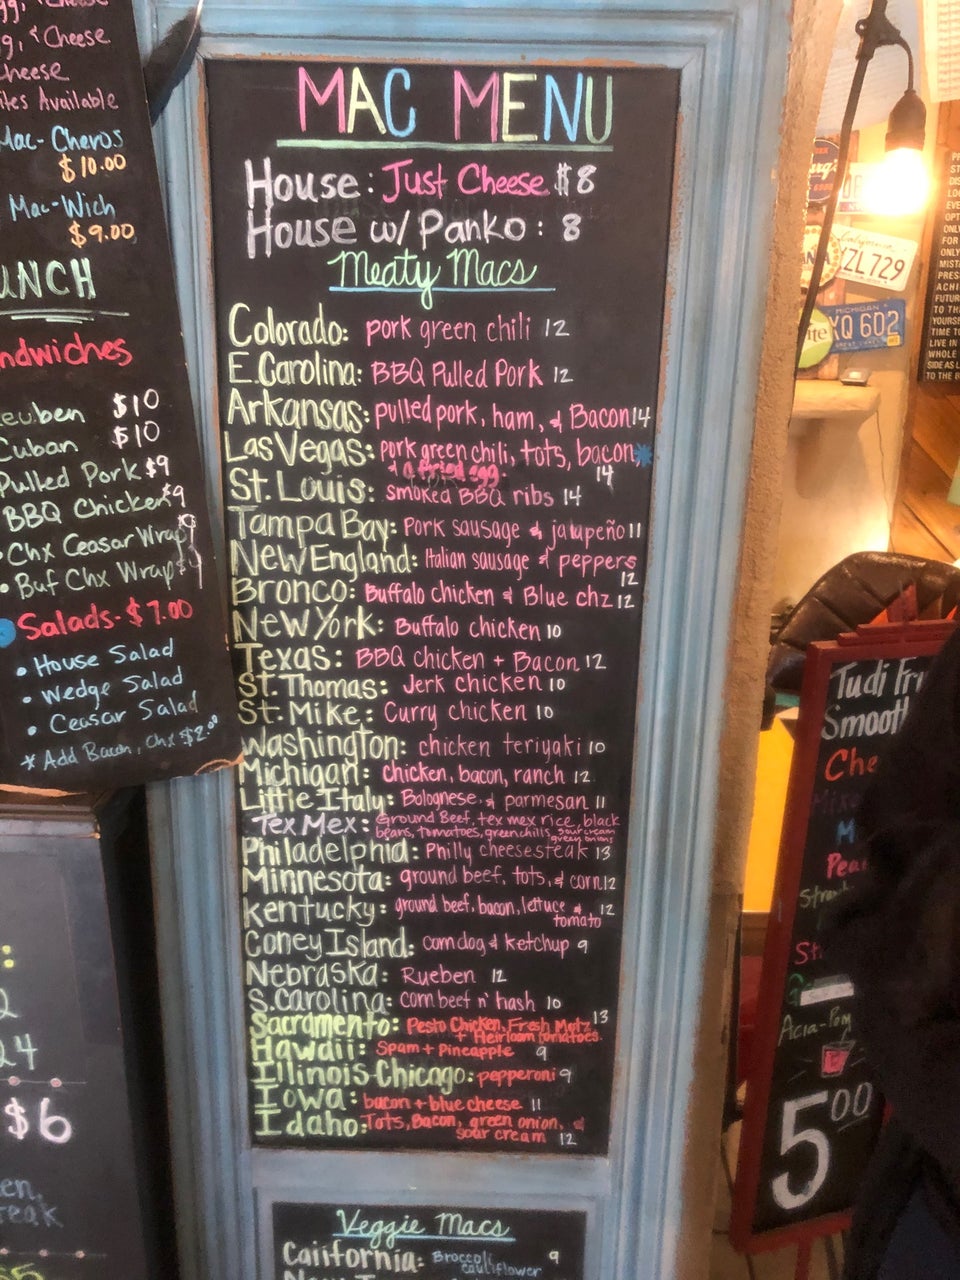 & Cheese
Cheese
Available
Mac-Cheros
$10.00
Mac-Wich
$9.00
Cuban $10
$10
Pulled Pork $9
BBQ Chicken $9
• Chx Ceasar Wrap
• Buf Chx Wrap
Salads-$7.00
• House Salad
• Wedge Salad
• Ceasar Salad
* Add Bacon, Chx $2.00
24
$6
MAC MENU
House: Just Cheese $8
House w/ Panko: 8
Meaty Macs
Colorado: pork green chili 12
E.Carolina: BBQ Pulled Pork 12
Arkansas: pulled pork, ham, & Bacon 14
Las Vegas: pork green chili, tots, bacon
& a fried egg. 14
St. Louis: smoked BBQ ribs 14
Tampa Bay: Pork sausage & jalapeño 11
New England: Italian sausage & peppers
12
Bronco: Buffalo chicken & Blue chz 12
New York: Buffalo chicken 10
Texas: BBQ chicken + Bacon 12
St. Thomas: Jerk chicken 10
St. Mike: Curry chicken 10
Washington: chicken teriyaki 10
Michigan: chicken, bacon, ranch 12
Little Italy: Bolognese & parmesan 11
Tex Mex: Ground Beef, tex mex rice, black
beans, tomatoes, green chills, sour cream
green onions
Philadelphia: Philly cheesesteak 13
Minnesota: ground beef, tots, & corn 12
Kentucky: ground beef, bacon, lettuce &
tomato 12
Coney Island: corn dog & ketchup 9
Nebraska: Rueben 12
S.Carolina: corn beef n' hash 10
Sacramento: Pesto Chicken, Fresh Motz 13
+ Heirloom tomatoes.
Hawaii: Spam + Pineapple 9
Illinois-Chicago: pepperoni 9
Iowa: bacon + blue cheese 11
Idaho: Tots, Bacon, green onion, &
sour cream 12
Veggie Macs
California: Broccoli 9
cauliflower
ZL729
MICHIGAN
XQ 602
Tudi Fr
Smoot
Che
Acia-Pom
5.00